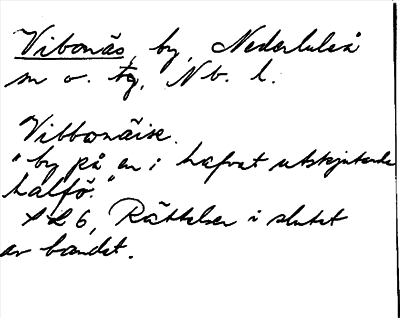 Vibonäs, by, Nederluleå
sn o. tg, Nb. l.
Vibbonäise.
"by på en i hafvet utskjutande
halfö."
SL 6, Rättelser i slutet
av bandet.